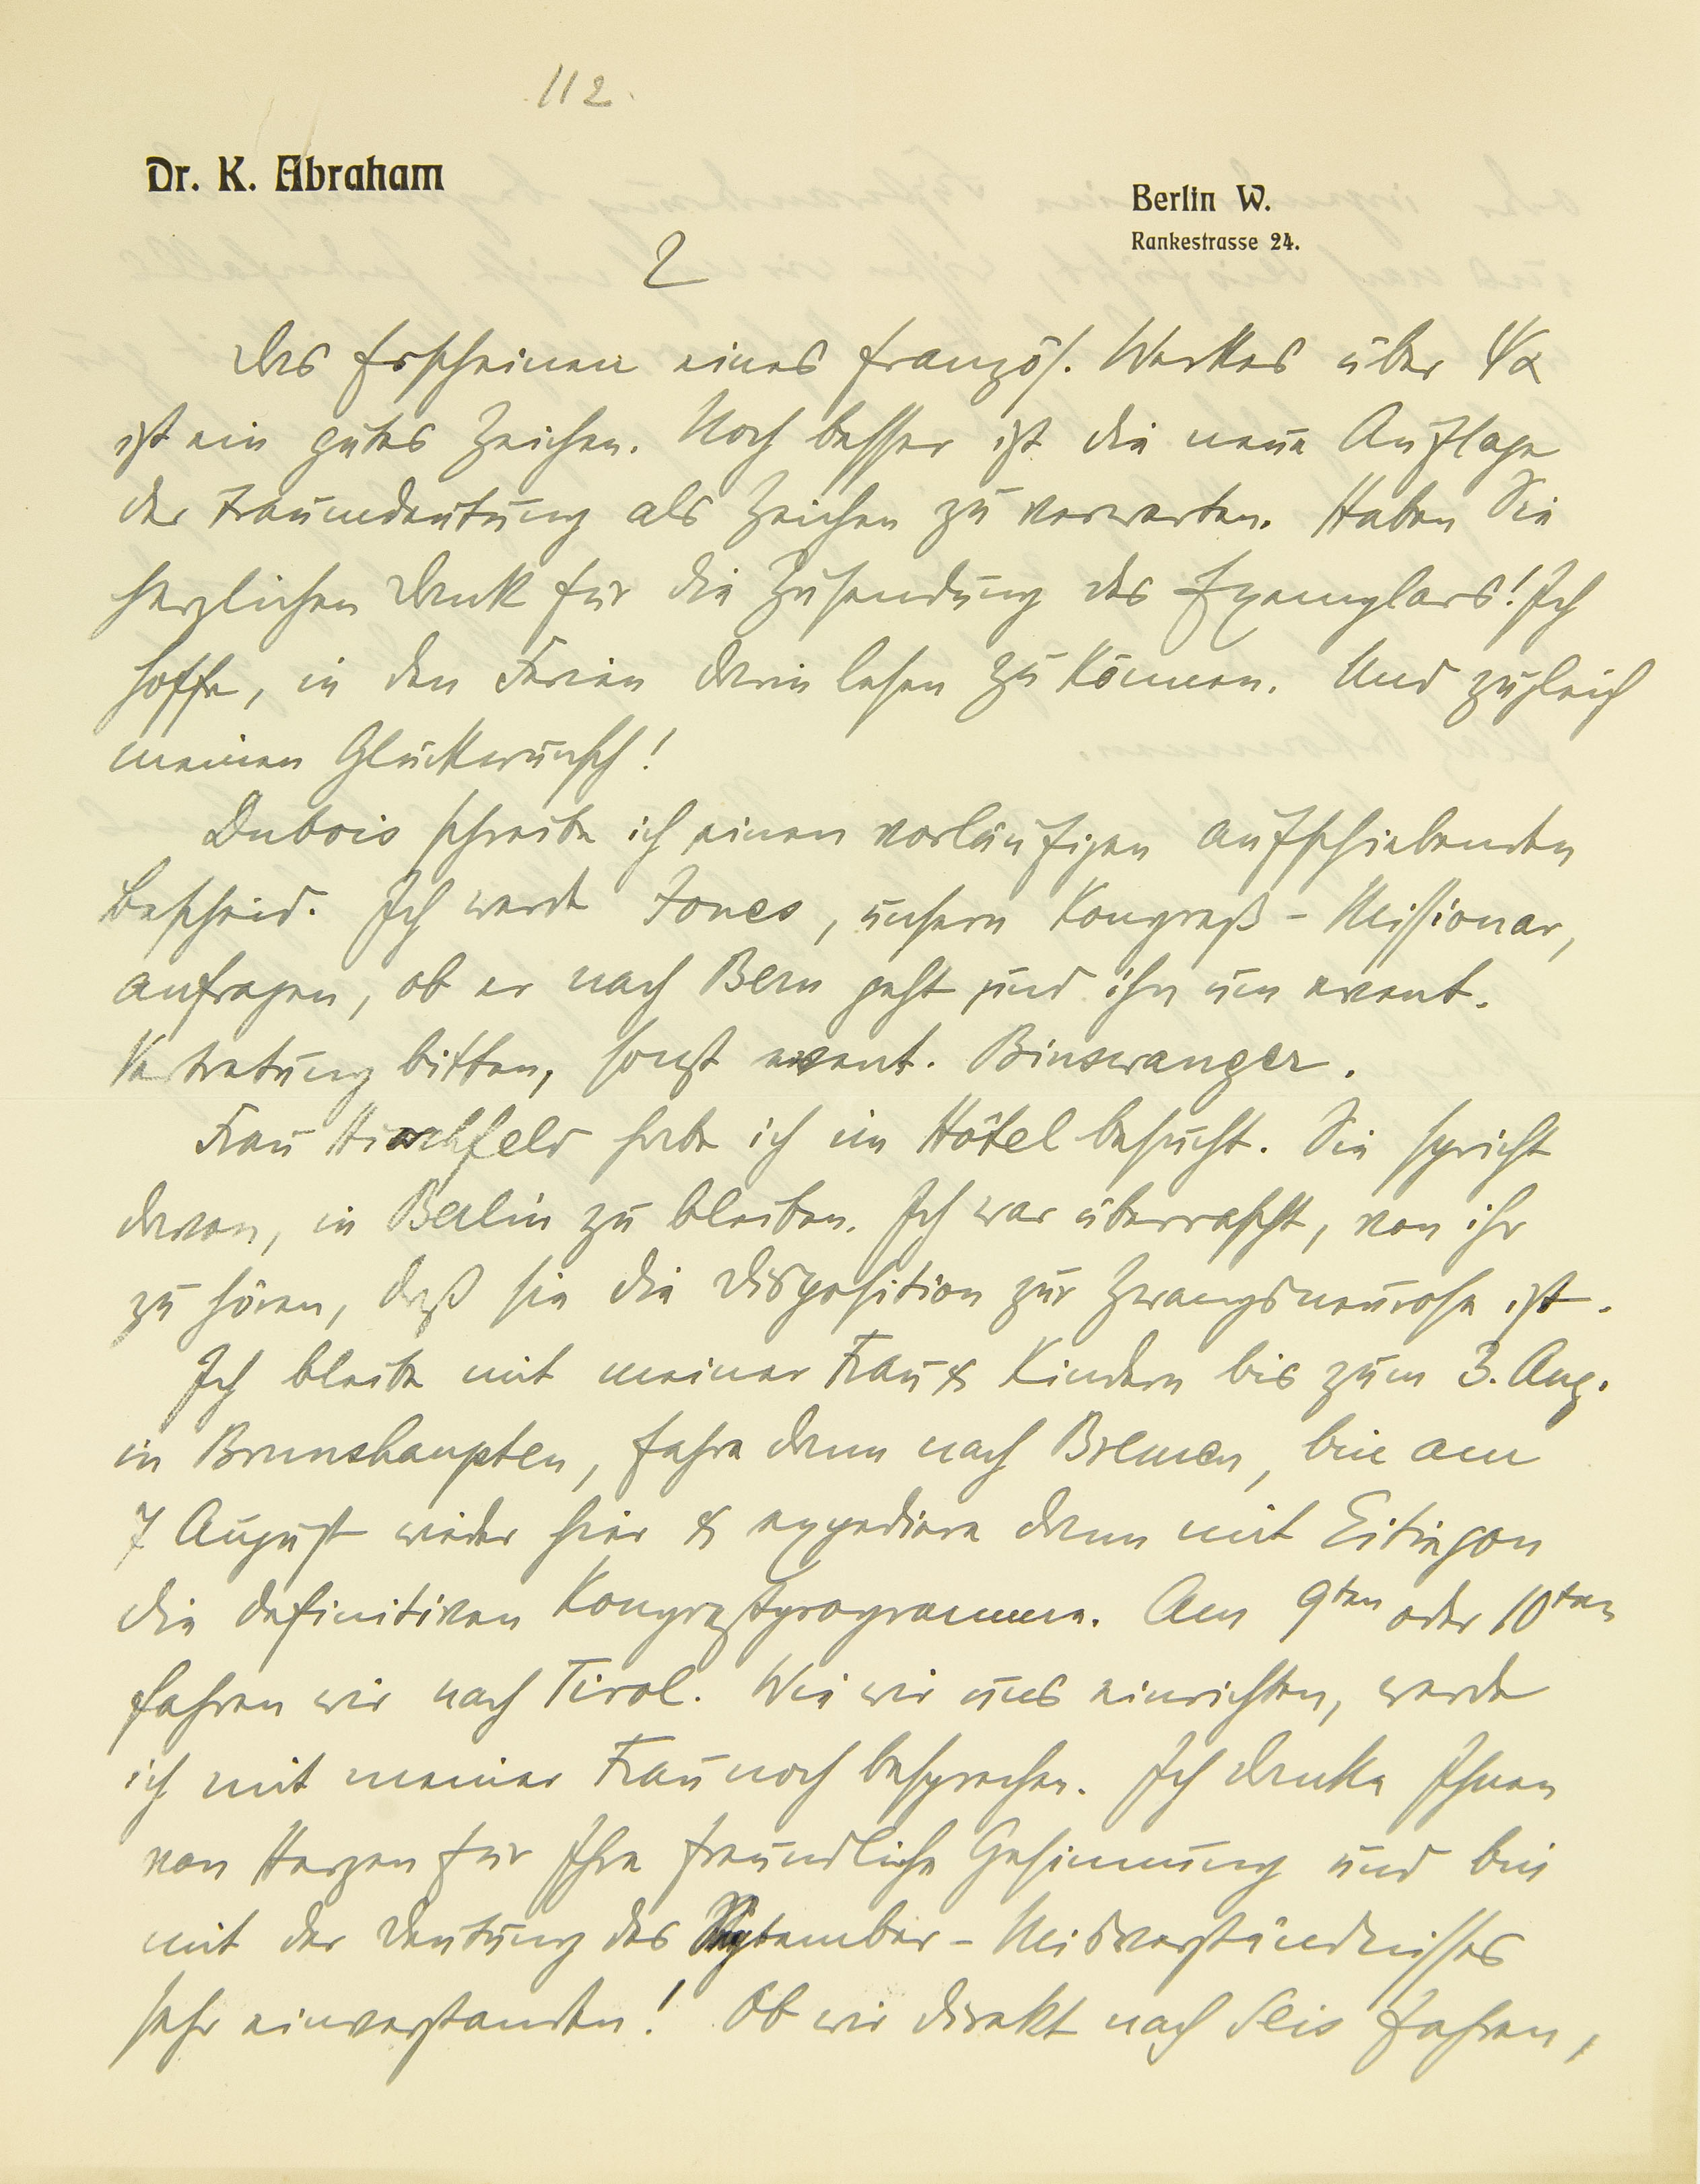 112
Dr. K. Abraham
Berlin W.
Rankestrasse 24.
2
Das Erscheinen eines französ. Werkes über ΨΑ
ist ein gutes Zeichen. Noch besser ist die neue Auflage
der Traumdeutung als Zeichen zu verwerten. Haben Sie
herzlichen Dank für die Zusendung des Exemplars! Ich
hoffe, in den Ferien darin lesen zu können. Und zugleich
meinen Glückwunsch!
Dubois schreibe ich einen vorläufigen aufschiebenden
Bescheid. Ich werde Jones, unsern Kongreß-Missionar,
anfragen, ob er nach Bern geht und ihn um event.
Vertretung bitten, sonst event. Binswanger.
Frau Hirschfeld habe ich im Hôtel besucht. Sie spricht
davon, in Berlin zu bleiben. Ich war überrascht, von ihr
zu hören, daß sie die Disposition zur Zwangsneurose ist.
Ich bleibe mit meiner Frau & Kindern bis zum 3. Aug.
in Brunshaupten, fahre dann nach Bremen, bin am
7 August wieder hier & expediere dann mit Eitingon
die definitiven Kongreßprogramme. Am 9ten oder 10ten
fahren wir nach Tirol. Wie wir uns einrichten, werde
ich mit meiner Frau noch besprechen. Ich danke Ihnen
von Herzen für Ihre freundliche Gesinnung und bin
mit der Deutung des September-Misverständnisses
sehr einverstanden! Ob wir direkt nach Seis fahren,